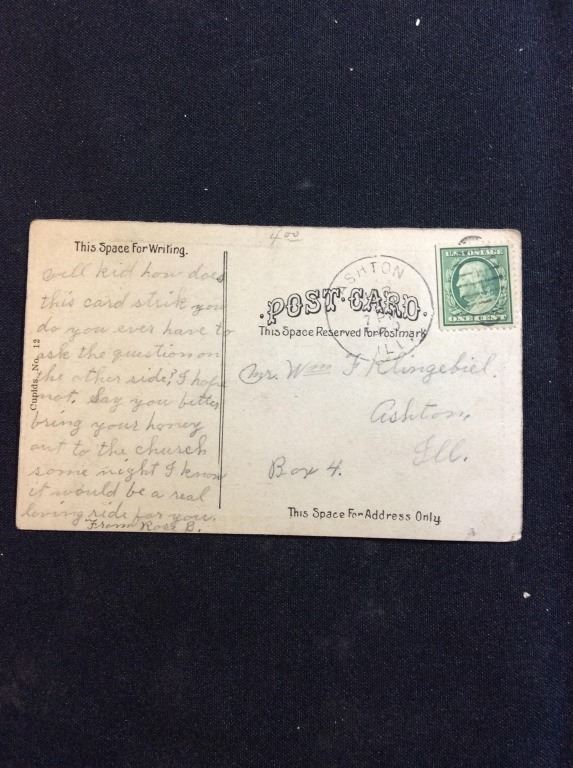 4.00
This Space For Writing.
well kid how does
this card strik you
do you ever have to
ask the question on
the other side? I hope
not. Say you better
bring your honey
out to the church
some night I know
it would be a real
loving ride for you.
From Rose B.
Cupids, No. 12
SHTON
ILL
U.S. POSTAGE
ONE CENT
POST CARD.
This Space Reserved For Postmark
Mr. Wm F Klingebiel.
Ashton,
Ill.
Box 4.
This Space For Address Only